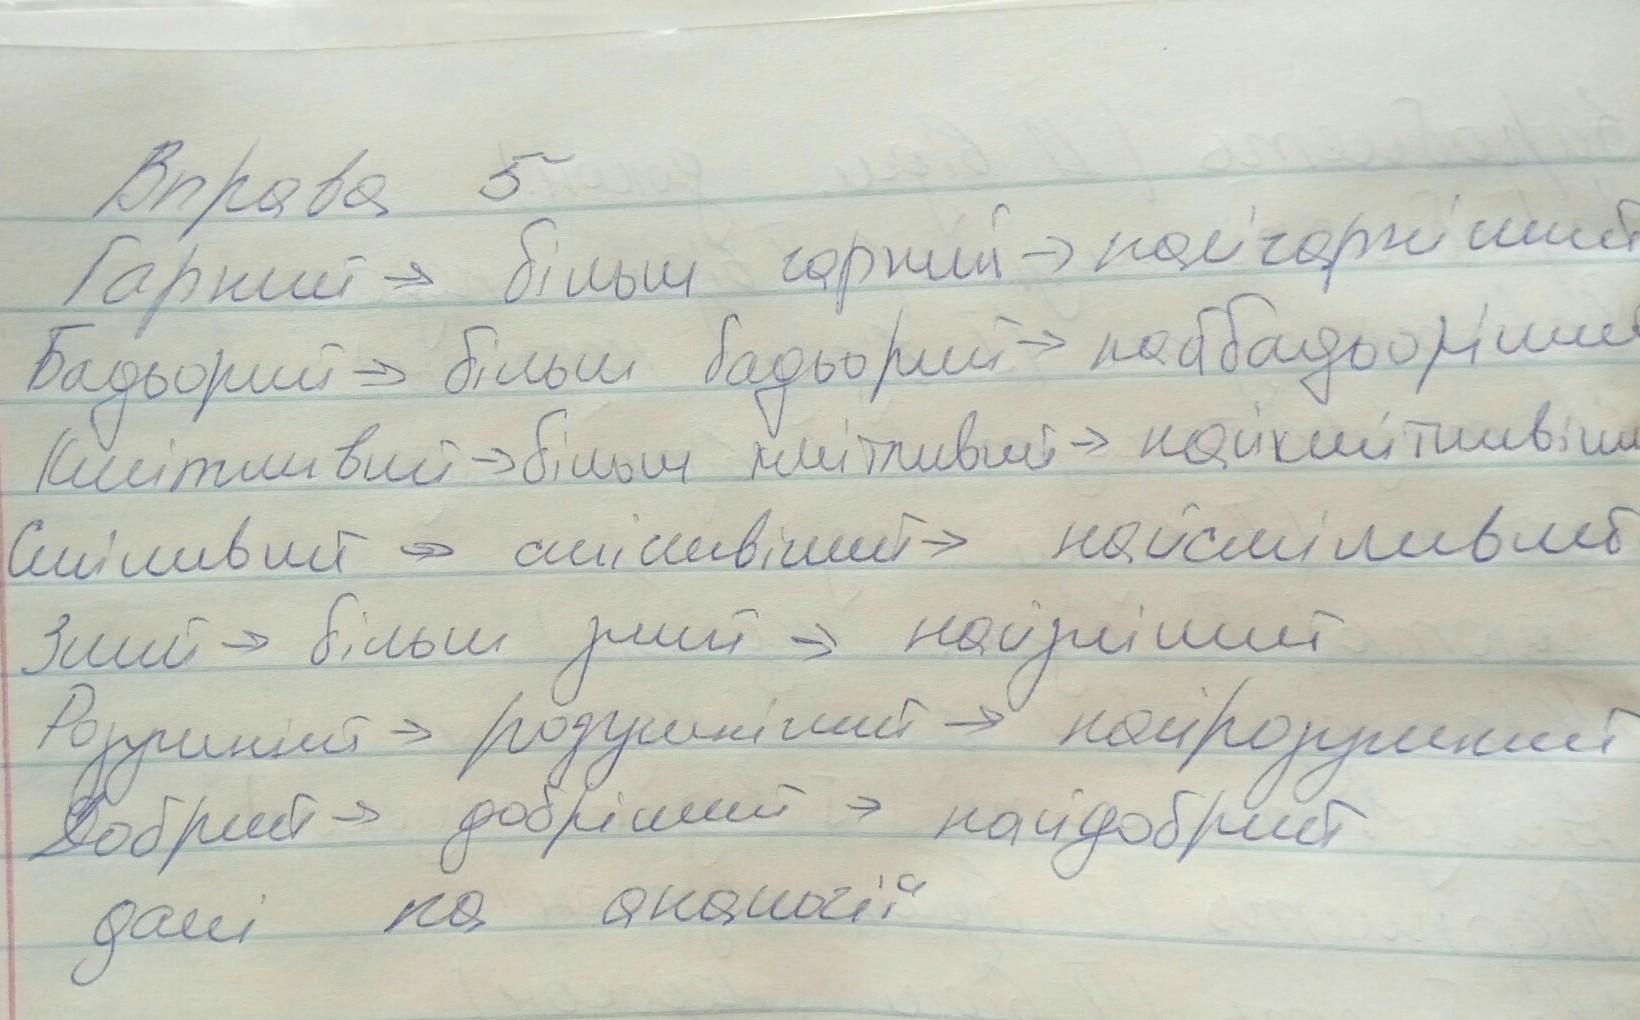 Вправа 5
Гарний → більш гарний → найгарніший
Бадьорий → більш бадьорий → найбадьоріший
Кмітливий → більш кмітливий → найкмітливіши
Сміливий → сміливіший → найсміливий
Злий → більш злий → найзліший
Розумний → розумніший → найрозумний
Добрий → добріший → найдобрий
далі на аналогії